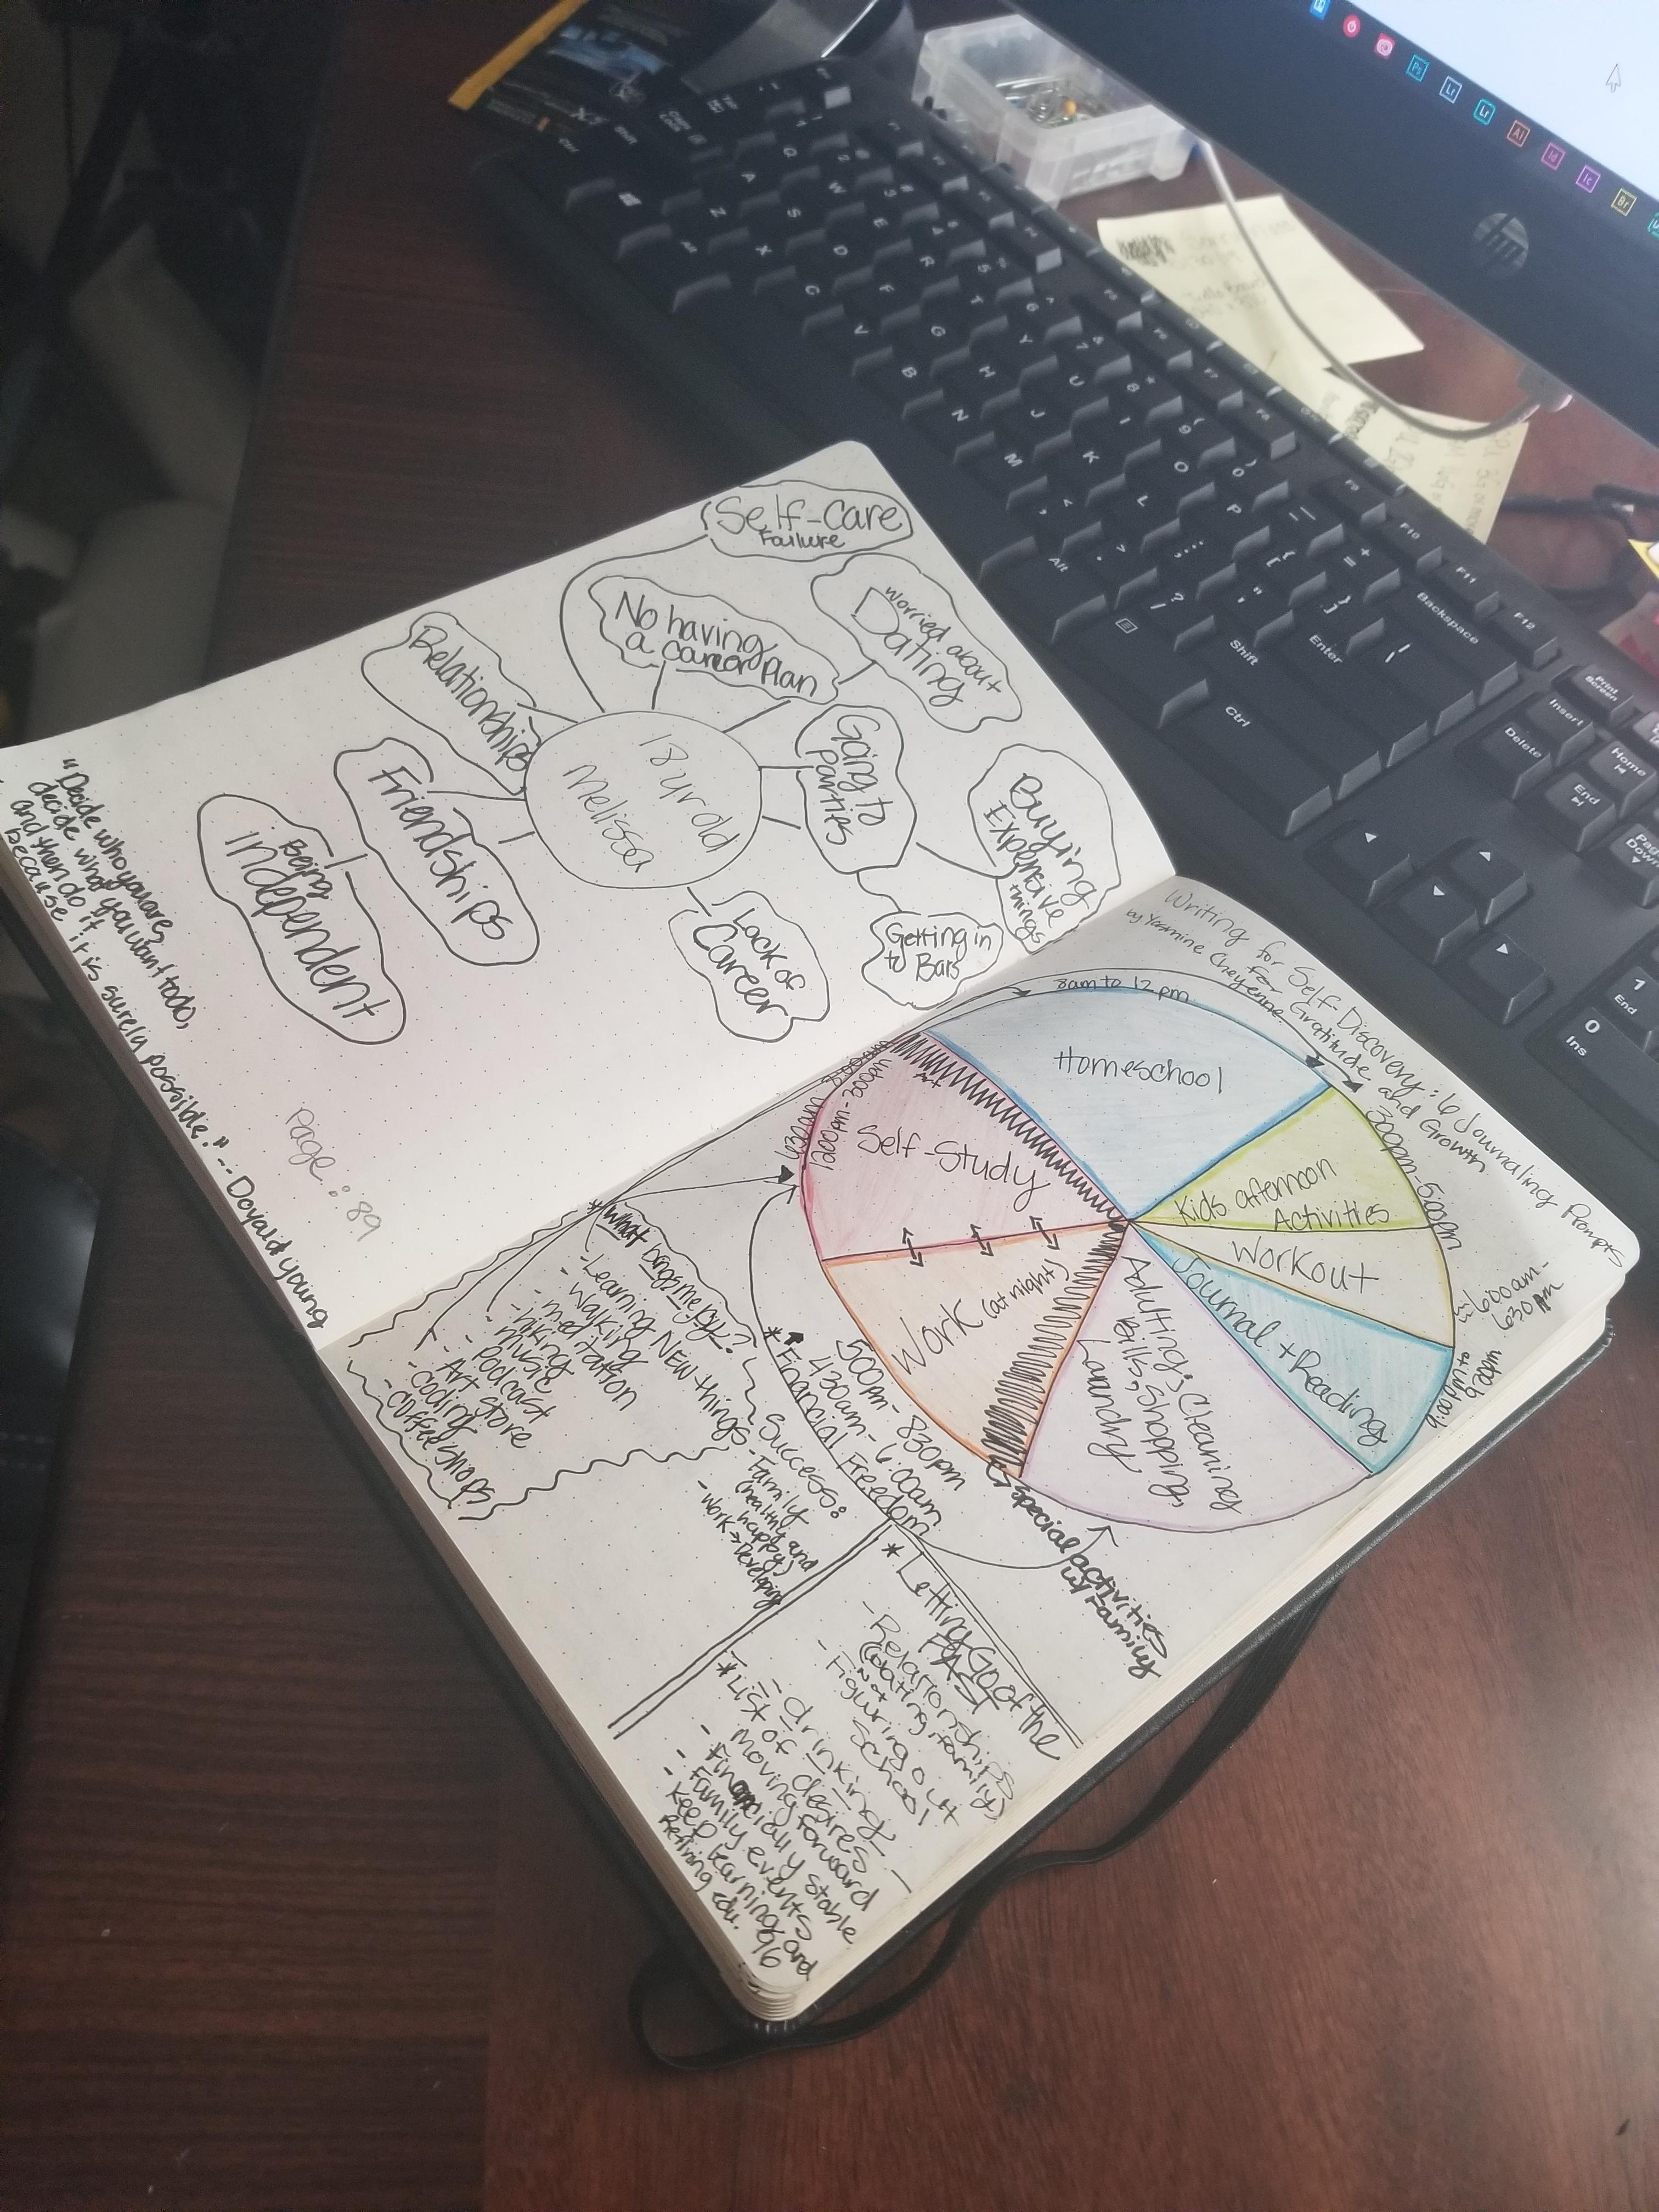 Self-Care
Failure
No having
a career Plan
worried about
Dating
Relationships
18 yr old
Melissa
Going to
parties
Buying
Expensive
things
Friendships
Being
independent
Lack of
Career
Getting in
to Bars
"Decide who you are,
decide what you want to do,
and then do it
because it is surely possible." -- Doyald Young
Page: 89
Writing for Self-Discovery: 6 Journaling Prompts
For Gratitude and Growth
by Yasmine Cheyenne
8am to 12pm
Homeschool
Art
6:30am
8:00am
12:00pm-3:00pm
Self-Study
Kids afternoon
Activities
3:00pm-5:00pm
Workout
6:00am-
6:30
Journal + Reading
Adulting; Cleaning
Bills, Shopping,
Laundry
Work (at night)
special activities
w/ Family
*What brings me Joy?
- Learning NEW things
- Walking
- meditation
- hiking
- music
- Podcast
- Art store
- Coding
- Coffee shops
5:00PM-8:30pm
4:30am-6:00am
*Financial Freedom
- Success:
- Family
(healthy and
happy)
- work > Developing
*Letting Go of the
PAST
- Relationships
(dating, not family)
- Figuring out
School
- drinking
*List of desires
moving forward
- Financially stable
- Family events
- Keep learning and
Refining edu.
96
Ps
Lr
Lr
Ai
Id
Ic
Br
hp
Q
W
E
R
T
Y
U
I
O
P
A
S
D
F
G
H
J
K
L
Z
X
C
V
B
N
M
Alt
Ctrl
Shift
Enter
Backspace
F7
F8
F9
F10
F11
F12
Print
Screen
Insert
Home
Delete
End
1
End
0
Ins